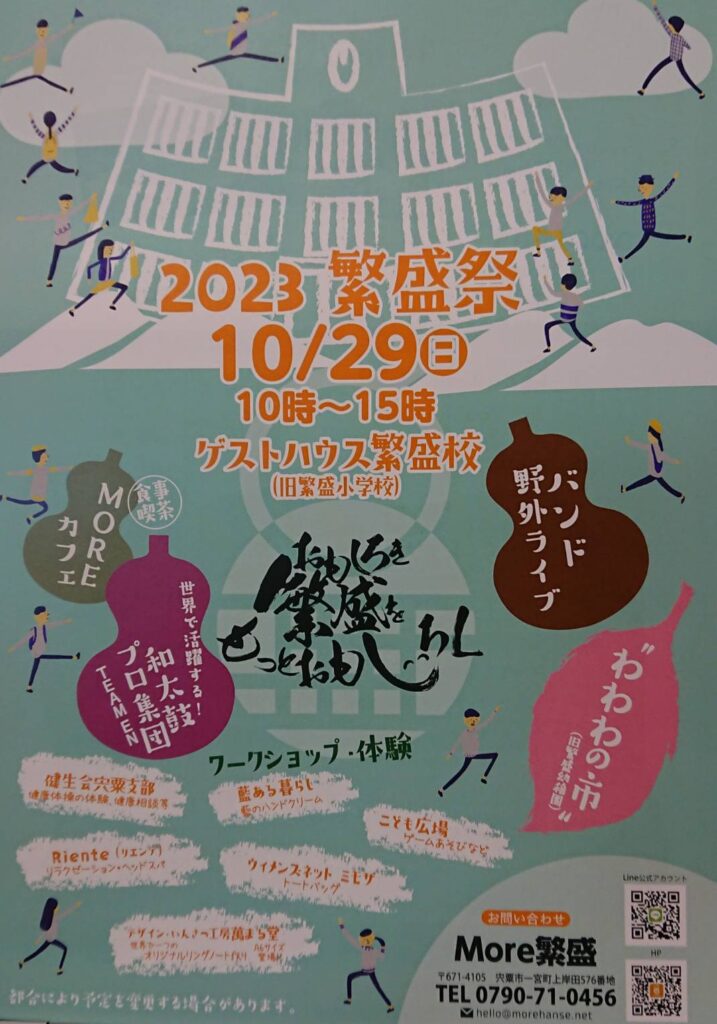 2023 繁盛祭
10/29㊐
10時～15時
ゲストハウス繁盛校
(旧繁盛小学校)
MORE
カフェ
食事
喫茶
バンド
野外ライブ
世界で活躍する!
和太鼓
プロ集団
TEAMEN
おもしろき
繁盛を
もっとおもしろく
"わわわの市"
(旧繁盛幼稚園)
ワークショップ・体験
健生会宍粟支部
健康体操の体験、健康相談等
藍ある暮らし
藍のハンドクリーム
こども広場
ゲームあそびなど
Riente (リエンテ)
リラクゼーション・ヘッドスパ
ウィメンズネット ミモザ
トートバッグ
デザイン・いんさつ工房萬まる堂
世界で一つの
オリジナルリングノート作り
A6サイズ
登場!!
Line公式アカウント
HP
お問い合わせ
More繁盛
〒671-4105 宍粟市一宮町上岸田576番地
TEL 0790-71-0456
hello@morehanse.net
都合により予定を変更する場合があります。